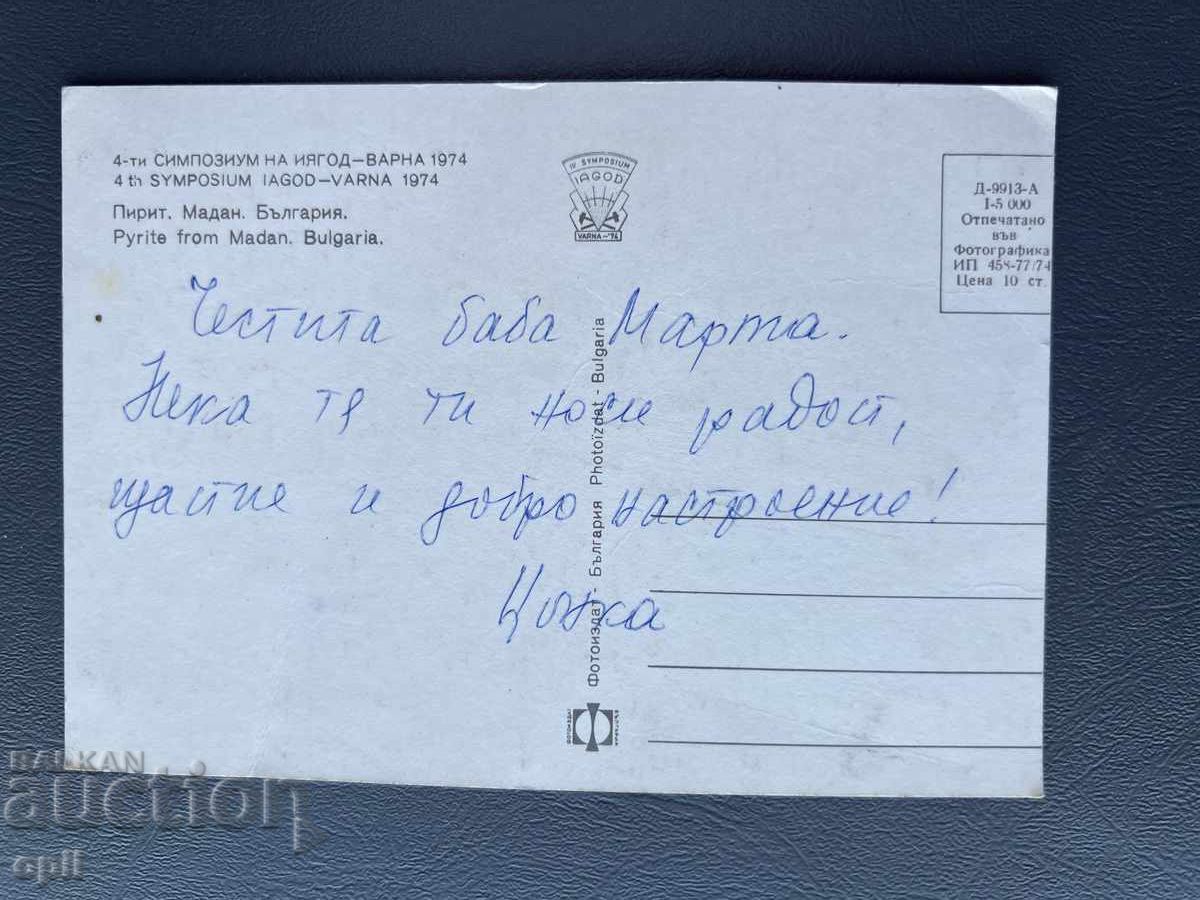 4-ти СИМПОЗИУМ НА ИЯГОД—ВАРНА 1974
4th SYMPOSIUM IAGOD—VARNA 1974
Пирит. Мадан. България.
Pyrite from Madan. Bulgaria.
IV SYMPOSIUM
IAGOD
VARNA-'74
Д-9913-А
I-5 000
Отпечатано
във
Фотографика
ИП 458-77/74
Цена 10 ст.
Честита баба Марта.
Нека тя ти носи радост,
щастие и добро настроение!
Цонка
Фотоиздат - България Photoïzdat - Bulgaria
ФОТОИЗДАТ
БЪЛГАРИЯ
BALKAN
auction